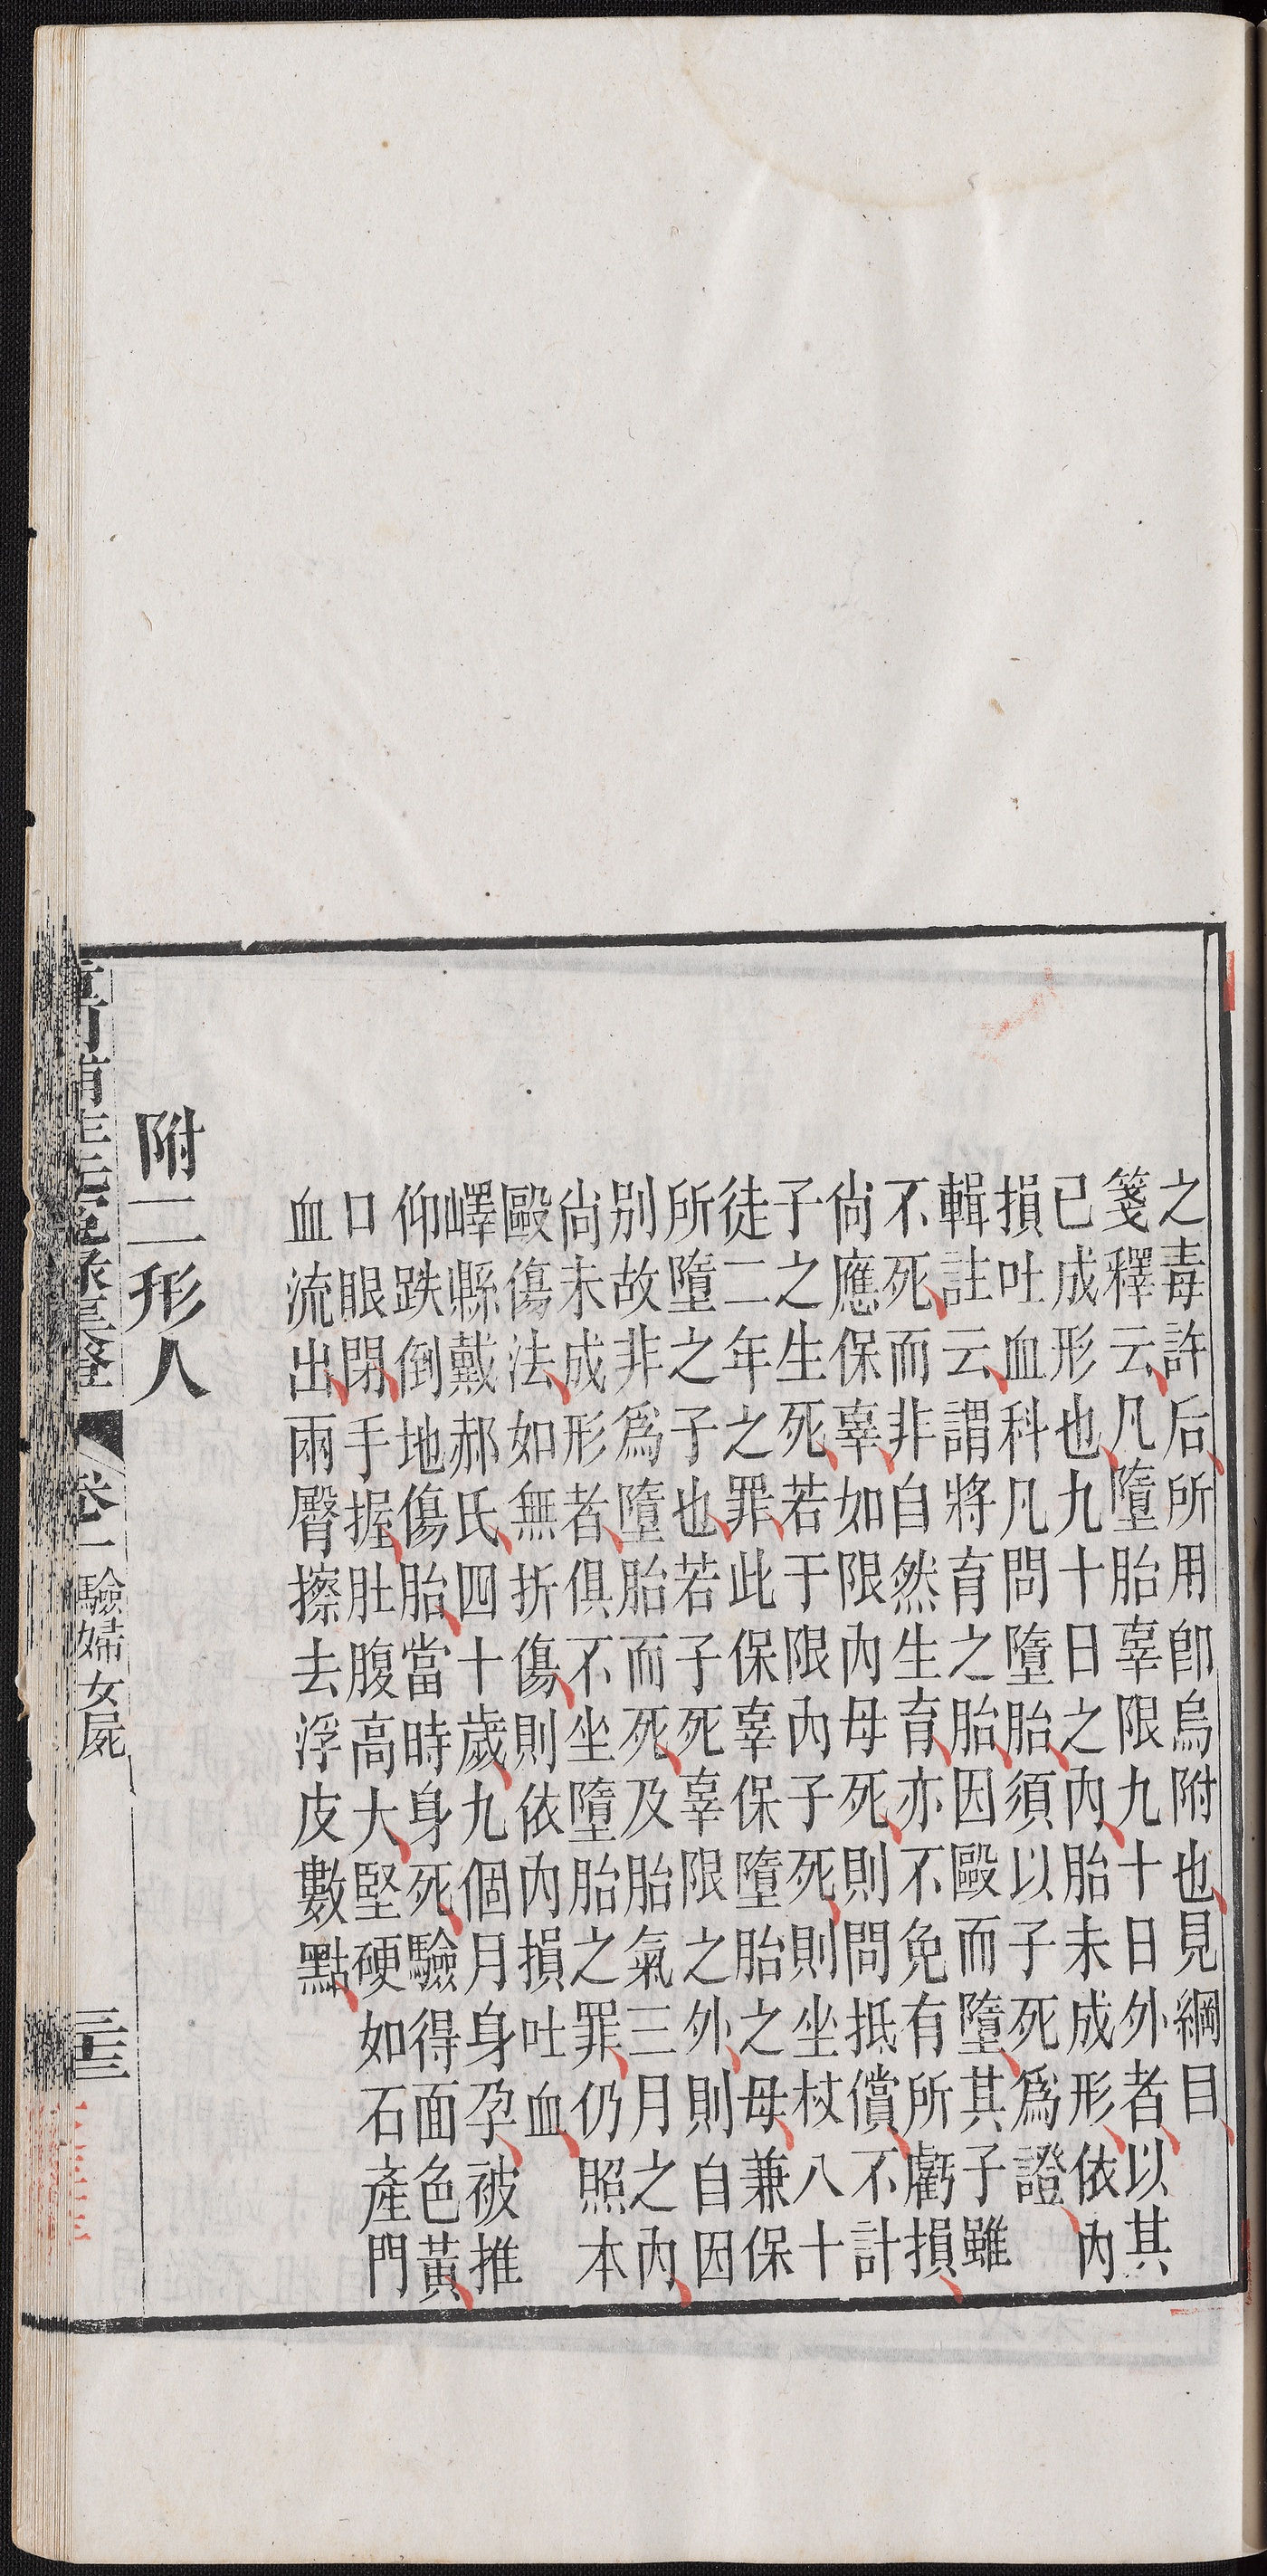 之毒許后所用卽烏附也見綱目
箋釋云凡墮胎辜限九十日外者以其
已成形也九十日之內胎未成形依內
損吐血科凡問墮胎須以子死爲證
輯註云謂將育之胎因毆而墮其子雖
不死而非自然生育亦不免有所虧損
尙應保辜如限內母死則問抵償不計
子之生死若于限內子死則坐杖八十
徒二年之罪此保辜保墮胎之母兼保
所墮之子也若子死辜限之外則自因
別故非爲墮胎而死及胎氣三月之內
尙未成形者俱不坐墮胎之罪仍照本
毆傷法如無折傷則依內損吐血
嶧縣戴郝氏四十歲九個月身孕被推
仰跌倒地傷胎當時身死驗得面色黃
口眼閉手握肚腹高大堅硬如石產門
血流出兩臀擦去浮皮數點
附二形人
卷一 驗婦女屍